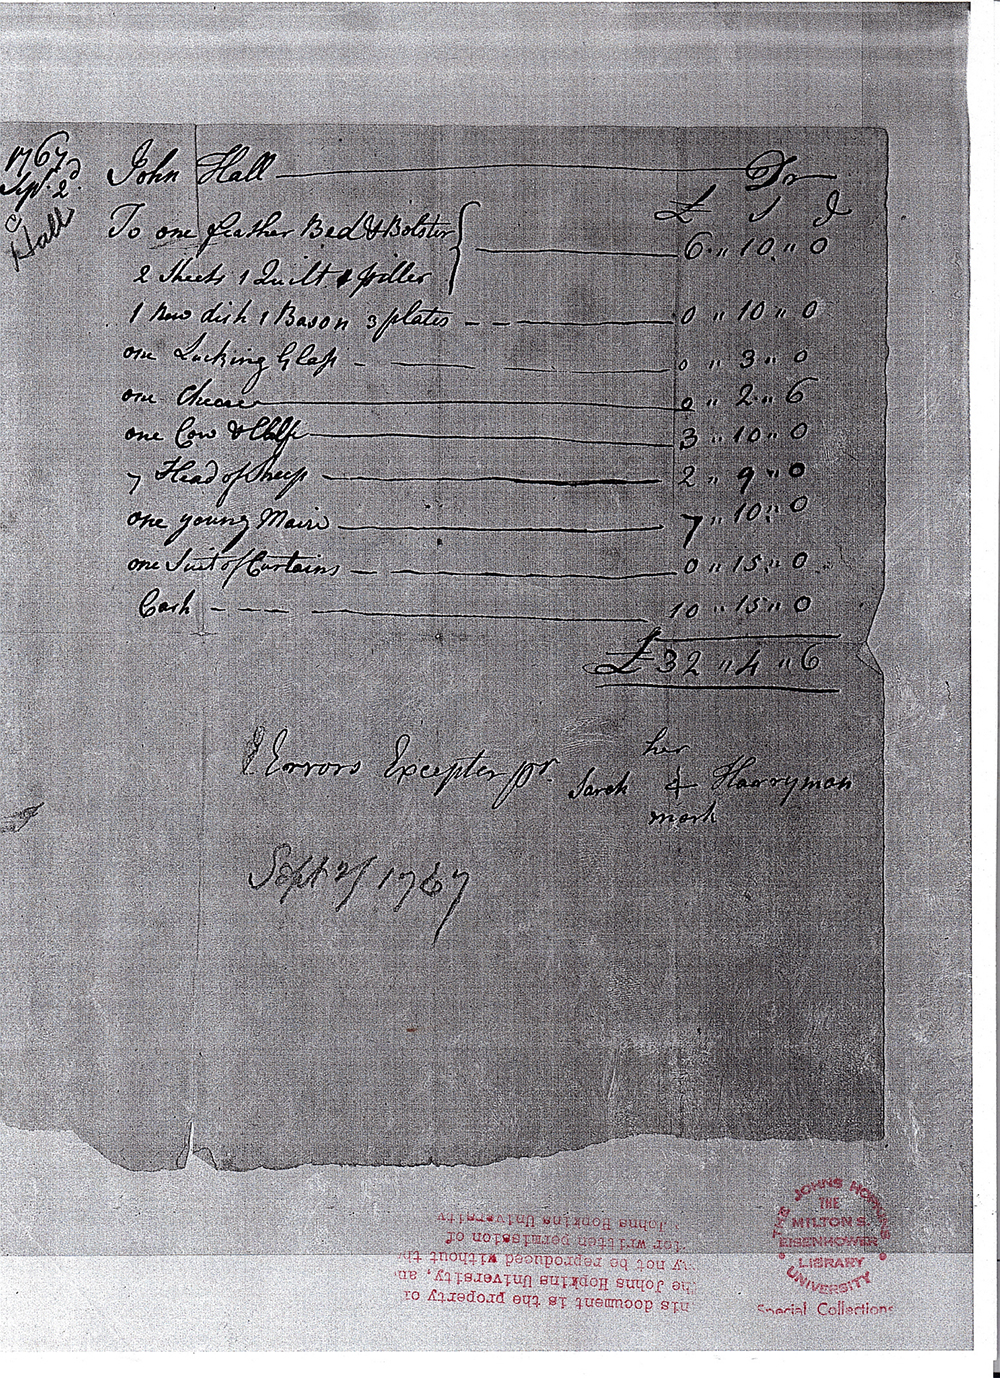 1767
Sept. 2d
Hall
John Hall Dr
£ s d
To one feather Bed & Bolster
2 Sheets 1 Quilt & piller 6 " 10 " 0
1 New dish 1 Bason 3 plates 0 " 10 " 0
one Lucking Glass 0 " 3 " 0
one Cheare 0 " 2 " 6
one Cow & Calf 3 " 10 " 0
7 Head of Sheep 2 " 9 " 0
one young Maire 7 " 10 " 0
one Suit of Curtains 0 " 15 " 0
Cash 10 " 15 " 0
£ 32 " 4 " 6
Errors Excepter pr. Sarah her mark Harryman
Sept 2/ 1767
his document is the property of
the Johns Hopkins University, an
y not be reproduced without th
written permission of
Johns Hopkins University
THE JOHNS HOPKINS UNIVERSITY
THE
MILTON S.
EISENHOWER
LIBRARY
Special Collections